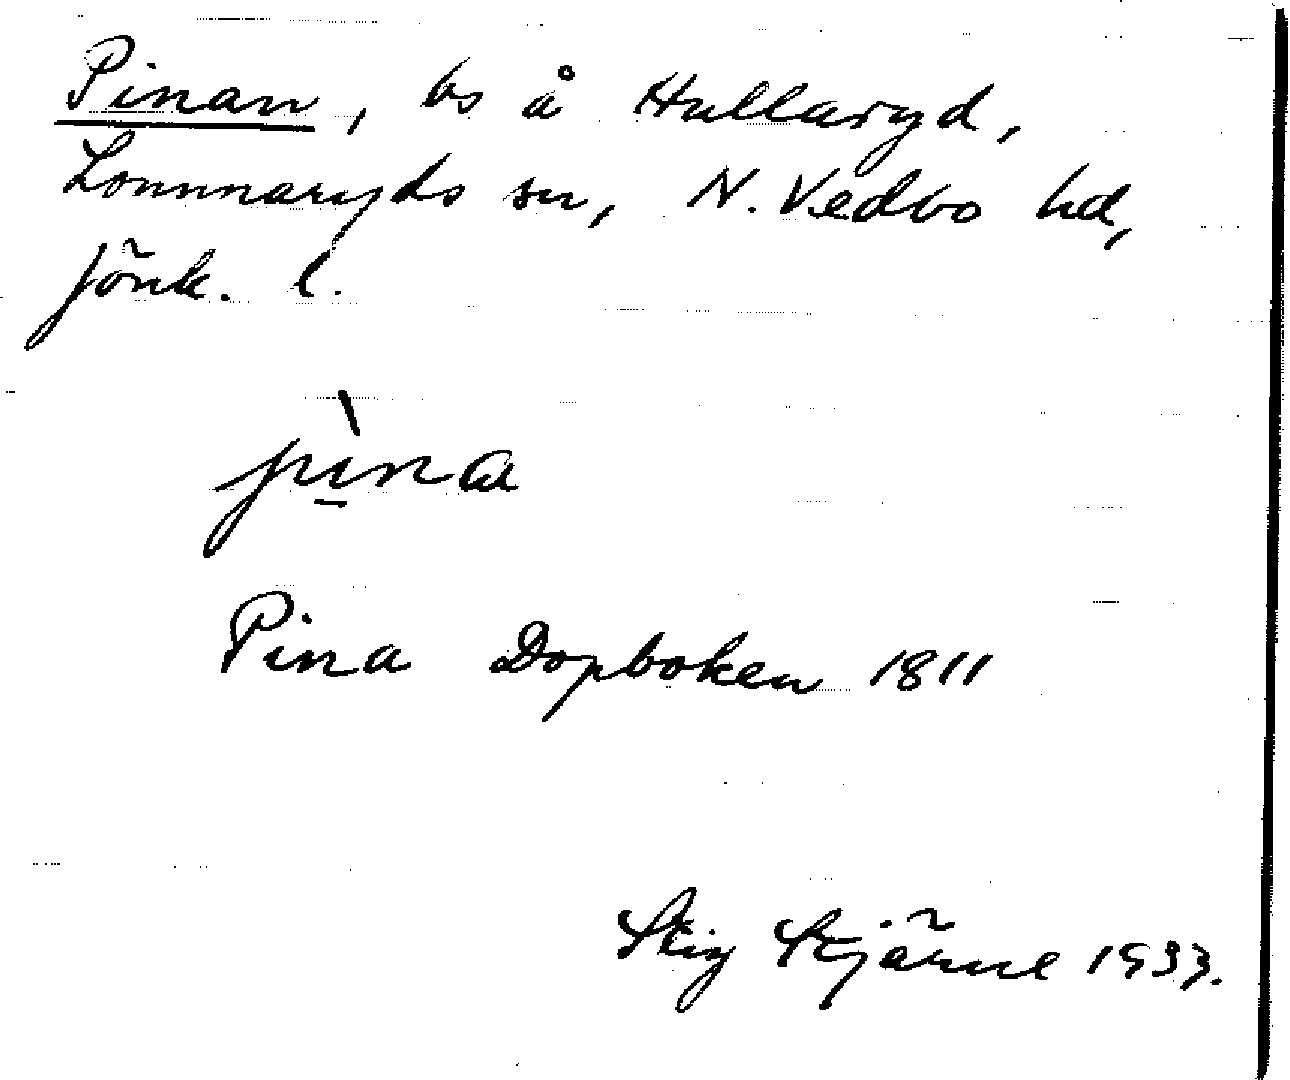 Pinan, bs å Hullaryd,
Lommaryds sn, N. Vedbo hd,
Jönk. l.
pìna
Pina Dopboken 1811
Stig Stjärne 1933.